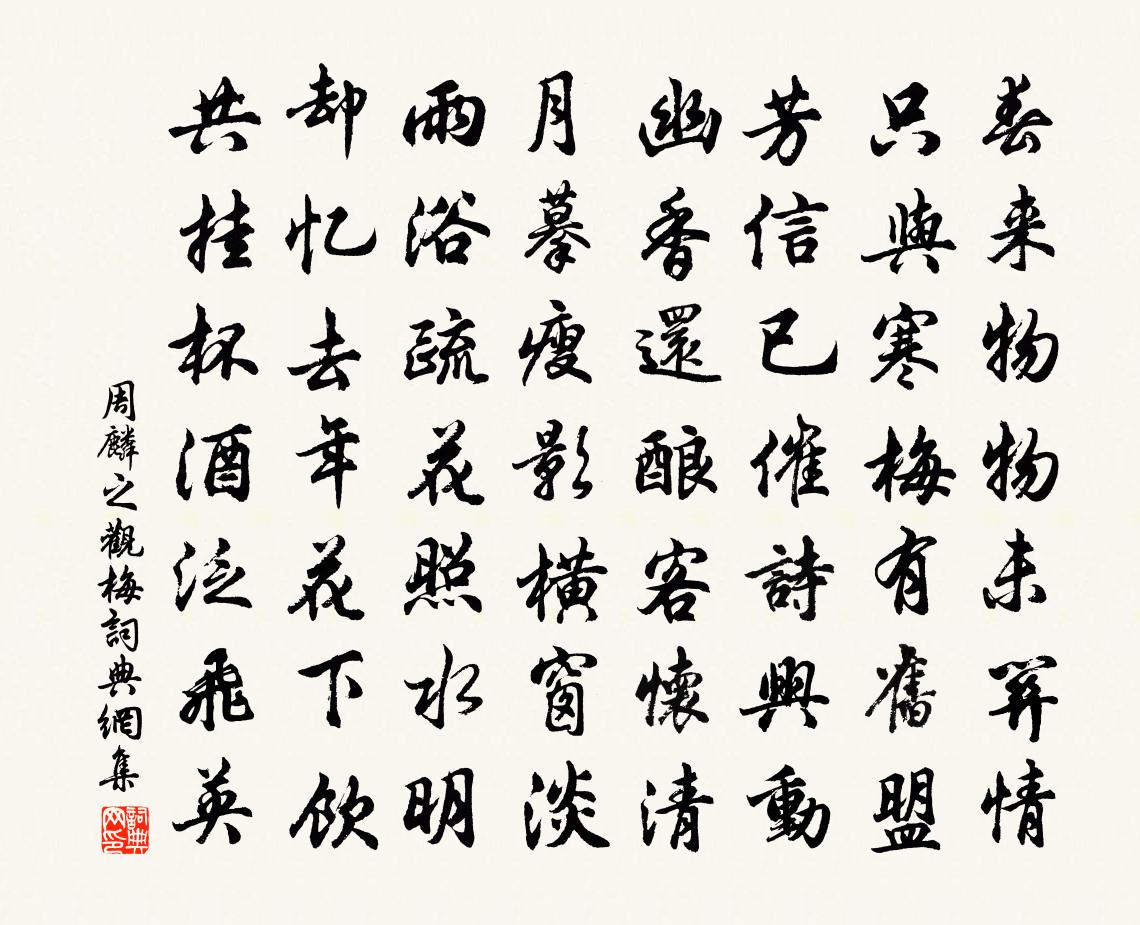 春来物物未關情
只與寒梅有舊盟
芳信已催詩興動
幽香還酿客懷清
月摹瘦影橫窗淡
雨浴疏花照水明
却忆去年花下飲
共挂杯酒泛飛英
周麟之觀梅詞典網集
詞典网印